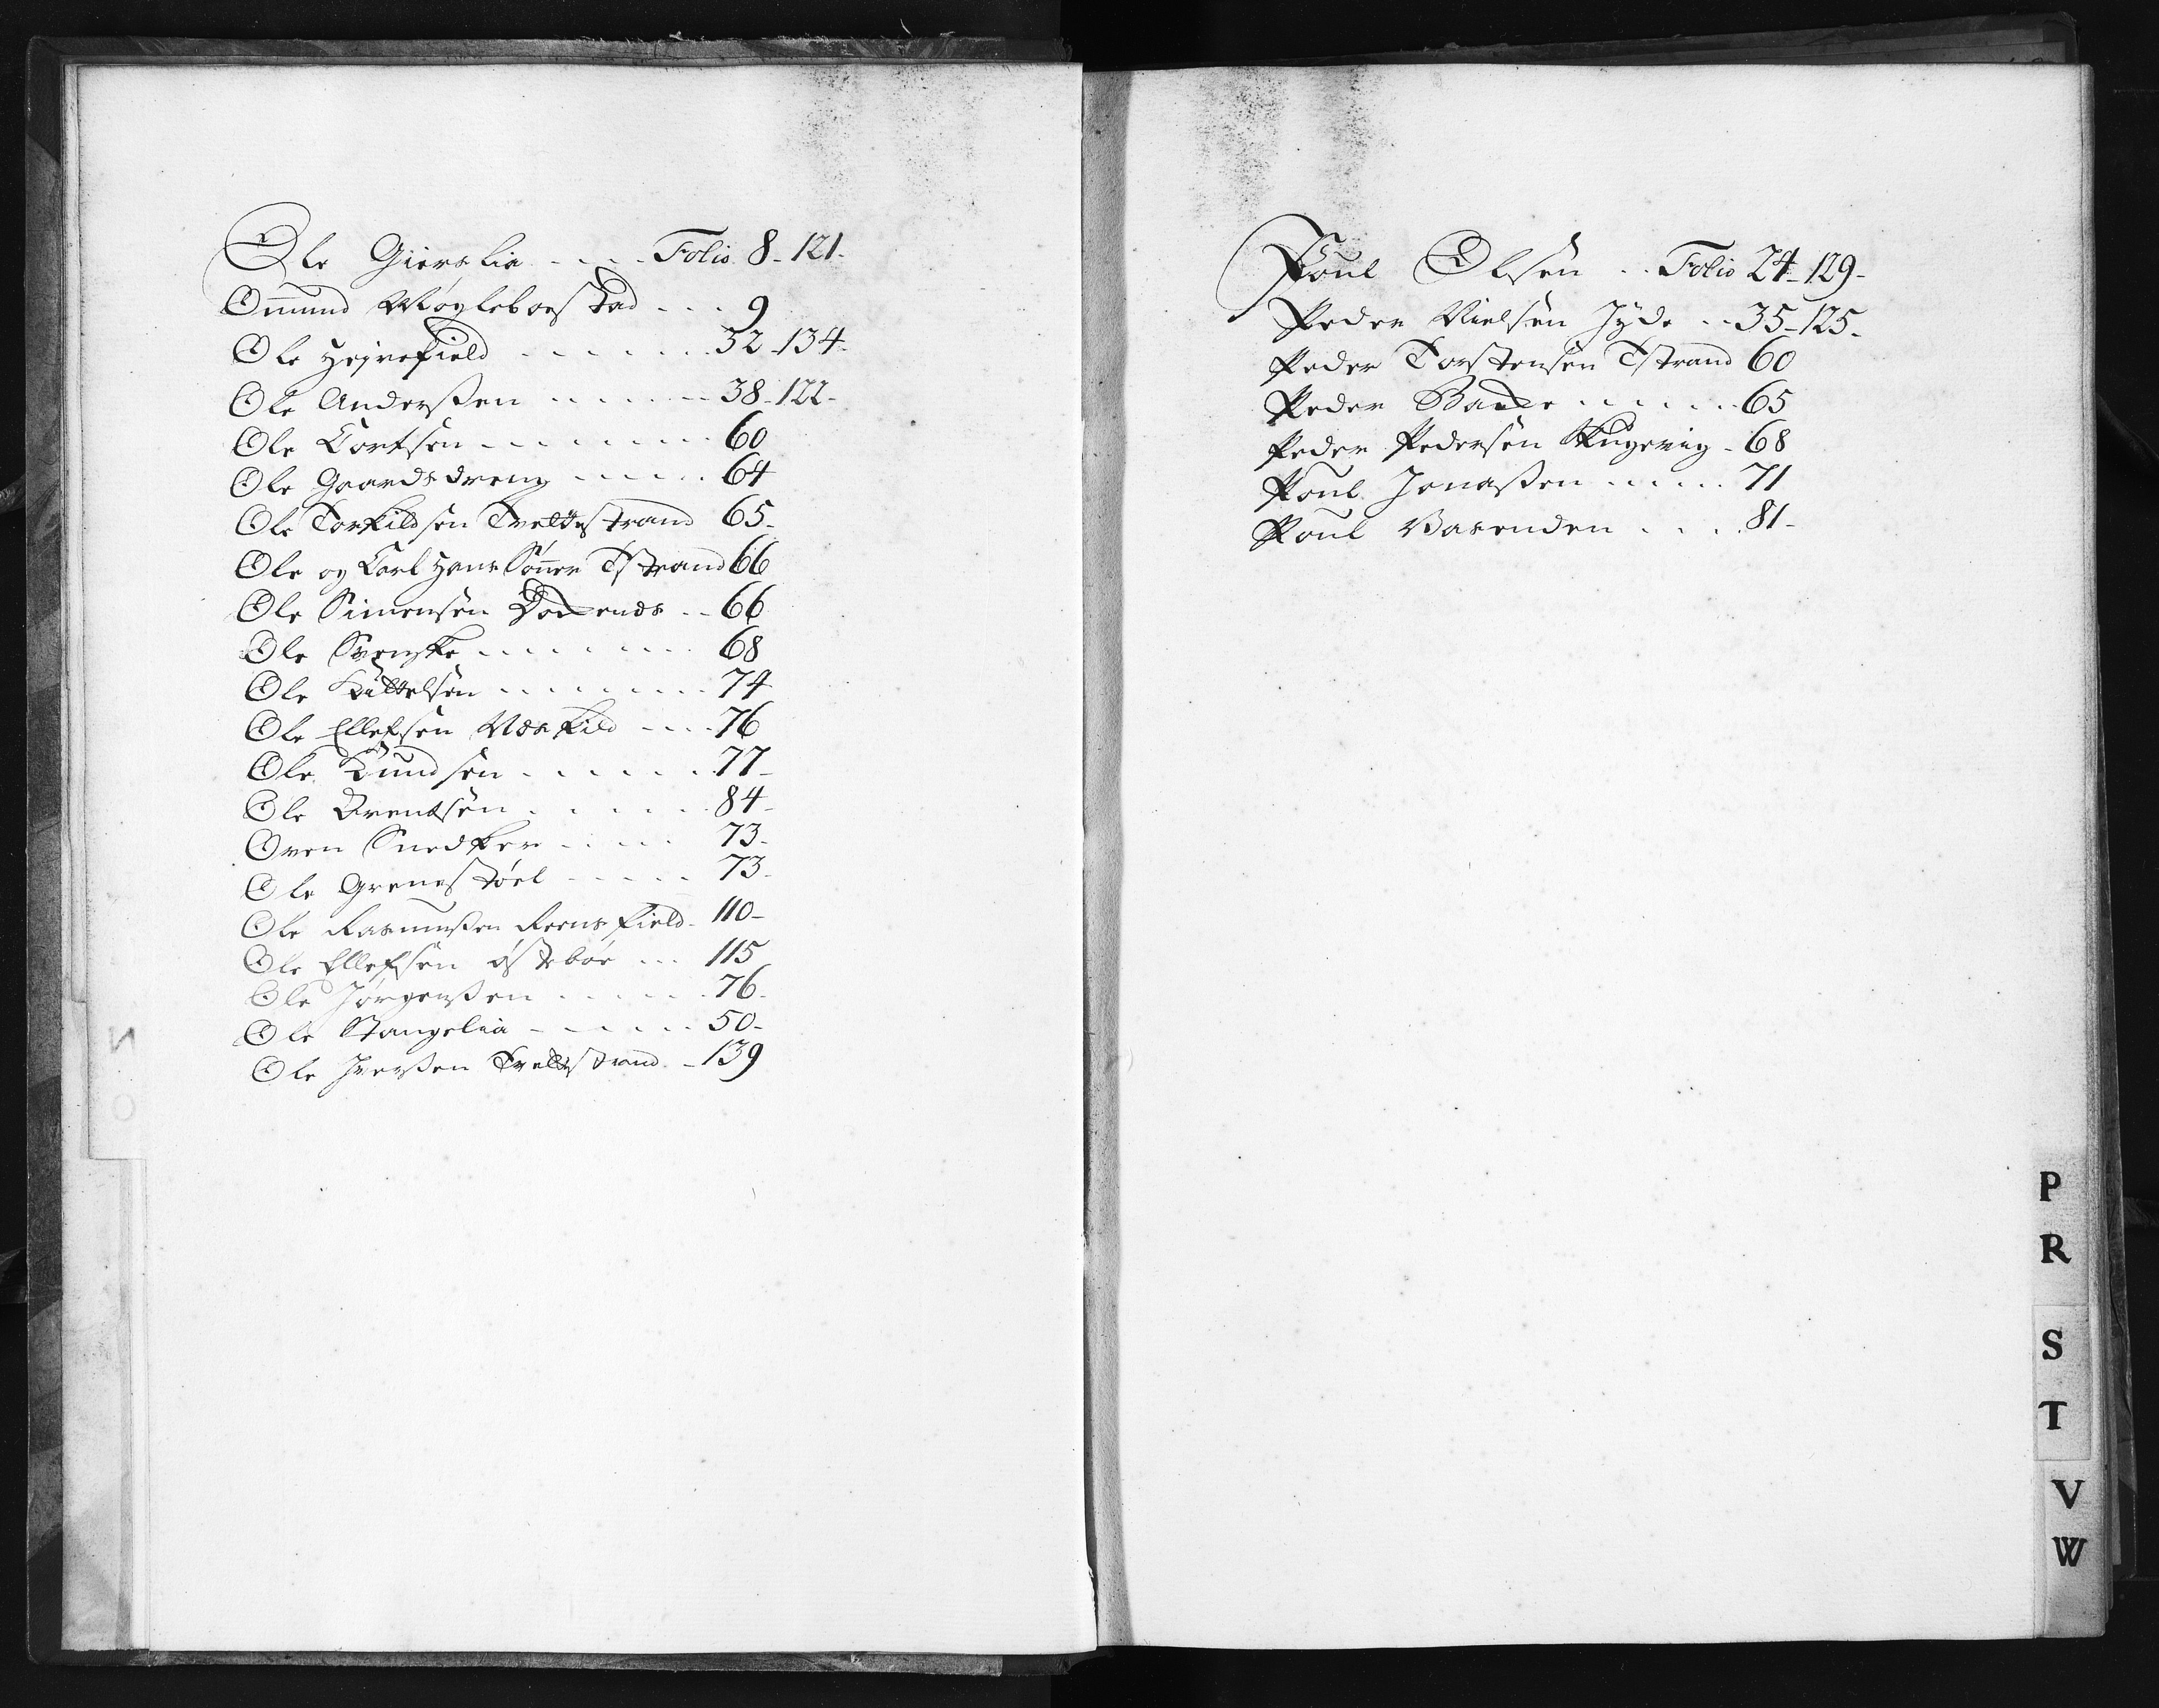 Ole Gierslia - - - - Folio 8 - 121 -
Omund Møgleboestad - - - 9
Ole Hejrefield - - - - - - 32 - 134 -
Ole Anderßen - - - - - - 38 - 122 -
Ole Cortsen - - - - - - - - 60
Ole Gaardsdreng - - - - - 64
Ole Torkildsen Tvedtestrand 65 -
Ole og Carl Hans Sønner Tstrand 66
Ole Simonsen - - 66
Ole Svenske - - - - - - - 68
Ole Kittelsen - - - - - - - - 74
Ole Ellefsen Næskild - - - - 76
Ole Knudsen - - - - - - 77 -
Ole Brentsen - - - - - 84 -
Oven Snedker - - - - 73 -
Ole Grenestøel - - - - - 73 -
Ole Rasmusßen Reensfield - 110 -
Ole Ellefsen østebøe - - - 115
Ole Jørgenßen - - - - - 76 -
Ole Stangelia - - - - - 50 -
Ole Iverßen Tvedtestrand - 139
Poul Olsen - - Folio 24 - 129 -
Peder Nielsen Jyde - - 35 - 125 -
Peder Torstensen Tstrand 60
Peder Bakke - - - - - - 65
Peder Pedersen Skugevig - 68
Poul Jonaßen - - - - - 71
Poul Basenden - - - - 81 -
P
R
S
T
V
W